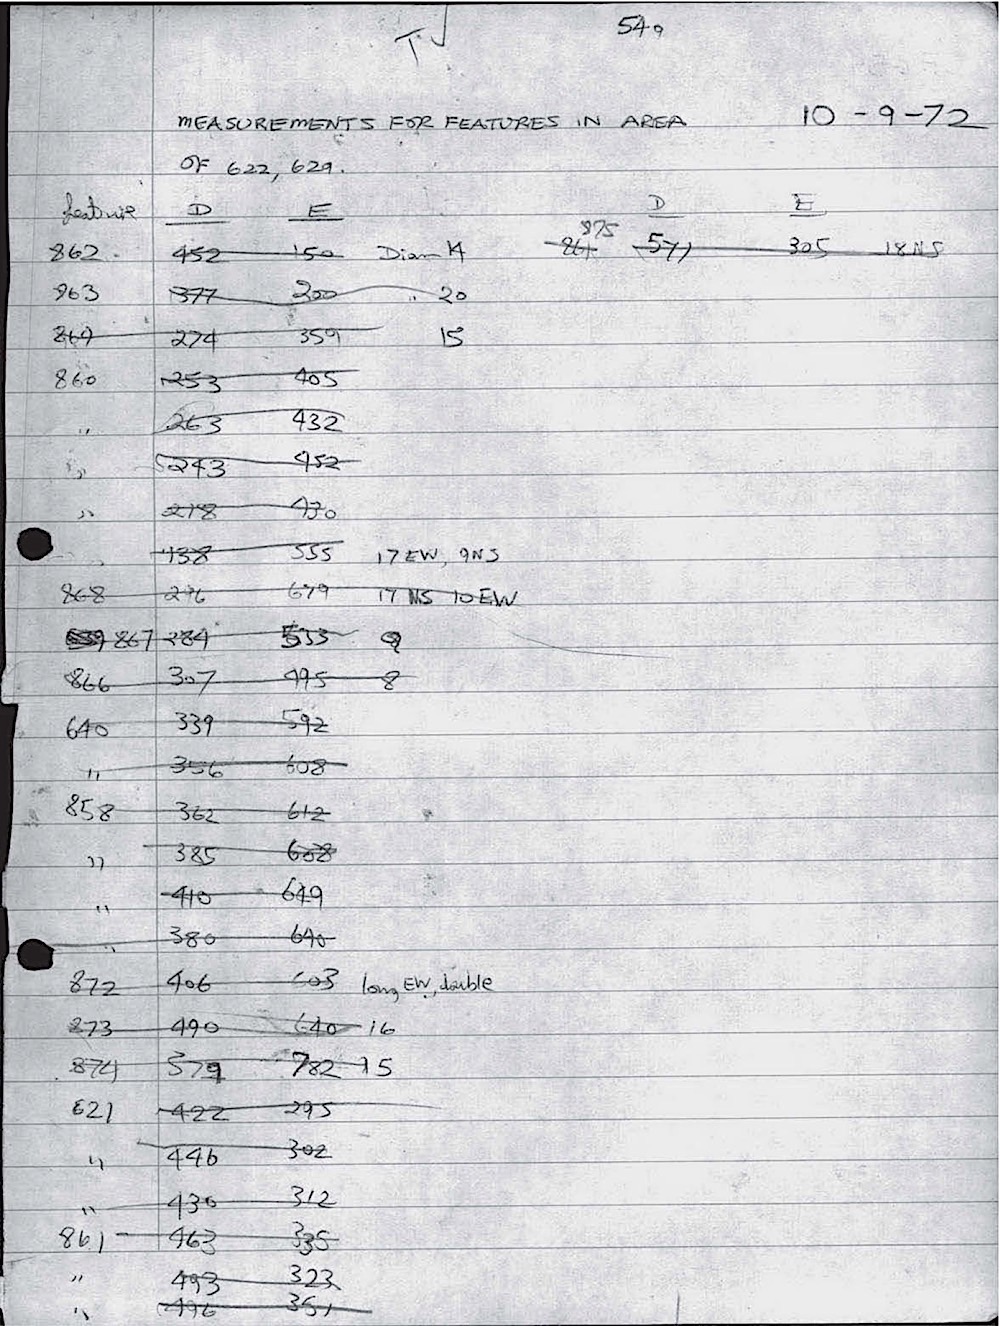 549
MEASUREMENTS FOR FEATURES IN AREA 10-9-72
OF 622, 629.
feature D E D E
862. 452 150 Diam 14 875 577 305 18 NS
963 377 200 " 20
869 274 359 15
860 253 405
" 263 432
" 243 452
" 278 430
" 438 555 17 EW, 9NS
868 296 679 17 NS 10 EW
867 284 533 9
866 307 495 8
640 339 592
" 356 608
858 362 612
" 385 608
" 410 649
" 380 640
872 406 603 long EW, double
873 490 640 16
874 579 782 15
621 422 295
" 446 302
" 430 312
861 463 335
" 493 323
" 496 351